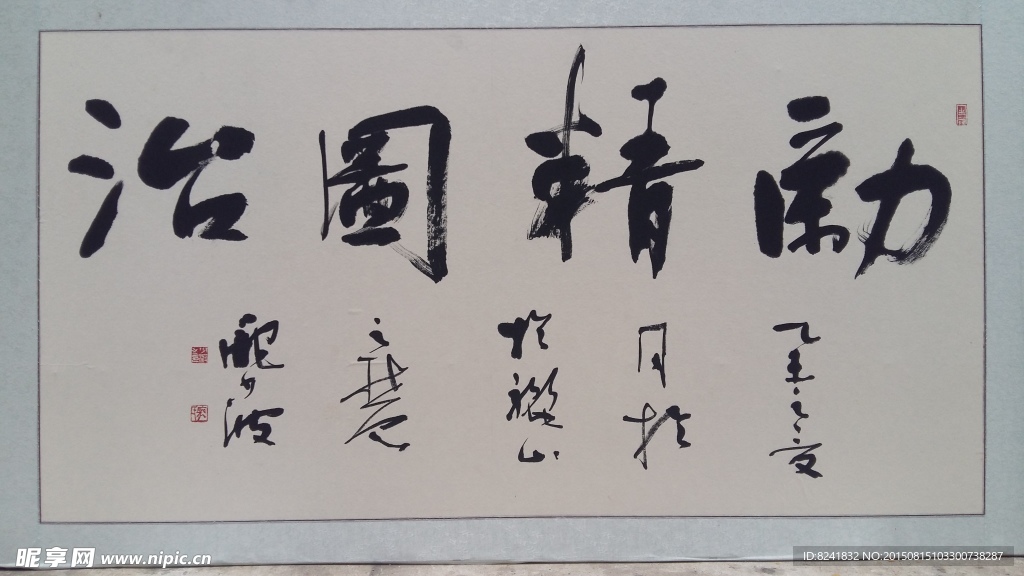 勵精圖治
乙未之夏
月於
於
山
之
波
昵享网 www.nipic.cn
ID:8241832 NO:20150815103300738287